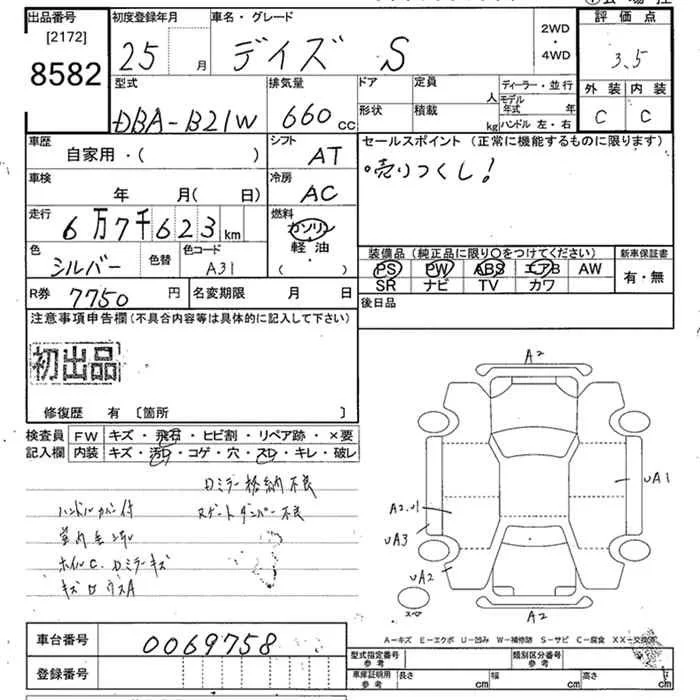 出品番号
[2172]
8582
初度登録年月
25 月
車名・グレード
デイズ S
2WD
・
4WD
評価点
3.5
外装 内装
C C
型式
DBA-B21W
排気量
660 cc
ドア
形状
定員 人
積載 kg
ディーラー・並行
モデル年式 年
ハンドル 左・右
車歴
自家用・( )
シフト
AT
セールスポイント (正常に機能するものに限ります)
売りつくし!
車検
年 月( 日)
冷房
AC
走行
6万7千623km
燃料
ガソリン
軽・油
( )
色
シルバー
色替
色コード
A31
装備品 (純正品に限り〇をつけてください)
PS PW ABS エアB AW
SR ナビ TV カワ
新車保証書
有・無
R券 7750 円
名変期限 月 日
後日品
注意事項申告欄 (不具合内容等は具体的に記入して下さい)
初出品
修復歴 有 [箇所 ]
検査員 記入欄
FW キズ・飛石・ヒビ割・リペア跡・×要
内装 キズ・汚レ・コゲ・穴・スレ・キレ・破レ
Dミラー格納不良
ハンドルカバー付
Rゲートダンパー不良
ホイルC、Dミラーキズ
A2
UA1
UA3
UA2
スペア
A2
A-キズ E-エクボ U-凹み W-補修跡 S-サビ C-腐食 XX-交換済
車台番号
0069758
登録番号
型式指定番号 参考
類別区分番号 参考
車庫証明用 参考
長さ cm
幅 cm
高さ cm